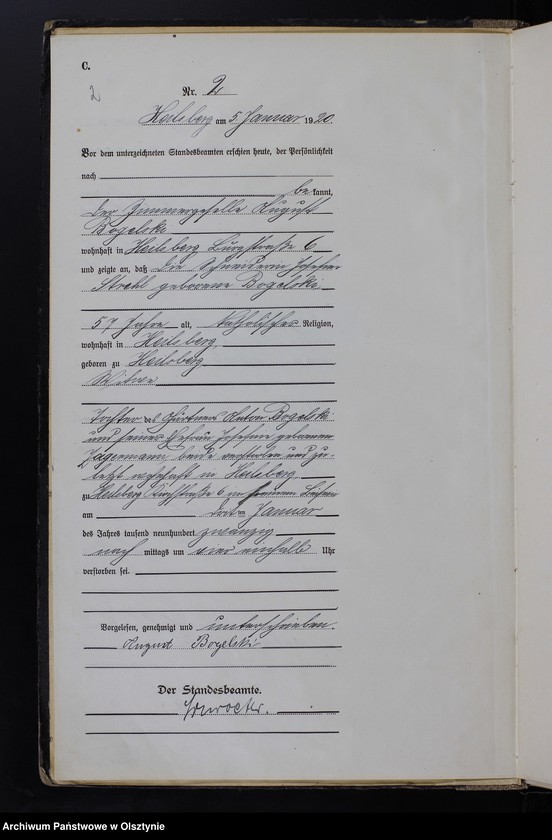 C.
2
Nr. 2
Heilsberg am 5 Januar 1920.
Vor dem unterzeichneten Standesbeamten erschien heute, der Persönlichkeit
nach
be kannt,
der Zimmergeselle August
Bogelski
wohnhaft in Heilsberg Burgstraße 6
und zeigte an, daß die Schneiderin Josefine
Strehl geborene Bogelski
57 Jahre alt, katholischer Religion,
wohnhaft in Heilsberg,
geboren zu Heilsberg
Witwe
Tochter des Gärtners Anton Bogelski
und seiner Ehefrau Josefine geborenen
beide verstorben und zu-
letzt wohnhaft in Heilsberg
zu Heilsberg 6 in
am dritten Januar
des Jahres tausend neunhundert zwanzig
nach mittags um vier einhalb Uhr
verstorben sei.
Vorgelesen, genehmigt und unterschrieben.
August Bogelski
Der Standesbeamte.
Archiwum Państwowe w Olsztynie